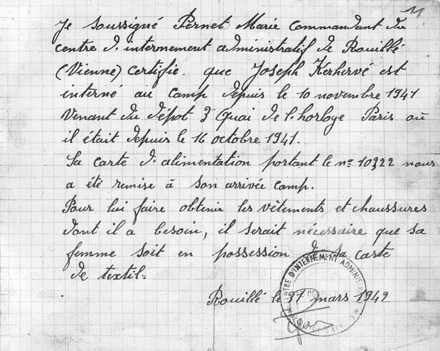 Je soussigné Pernet Marie Commandant du
centre d'internement administratif de Rouillé
(Vienne) certifie que Joseph Kerhervé est
interné au camp depuis le 10 novembre 1941
Venant du dépot 3 Quai de l'horloge Paris où
il était depuis le 16 octobre 1941.
Sa carte d'alimentation portant le n° 10322 nous
a été remise à son arrivée camp.
Pour lui faire obtenir les vêtements et chaussures
dont il a besoin, il serait nécessaire que sa
femme soit en possession de sa carte
de textil.
Rouillé le 31 mars 1942
CENTRE D'INTERNEMENT ADMINISTRATIF